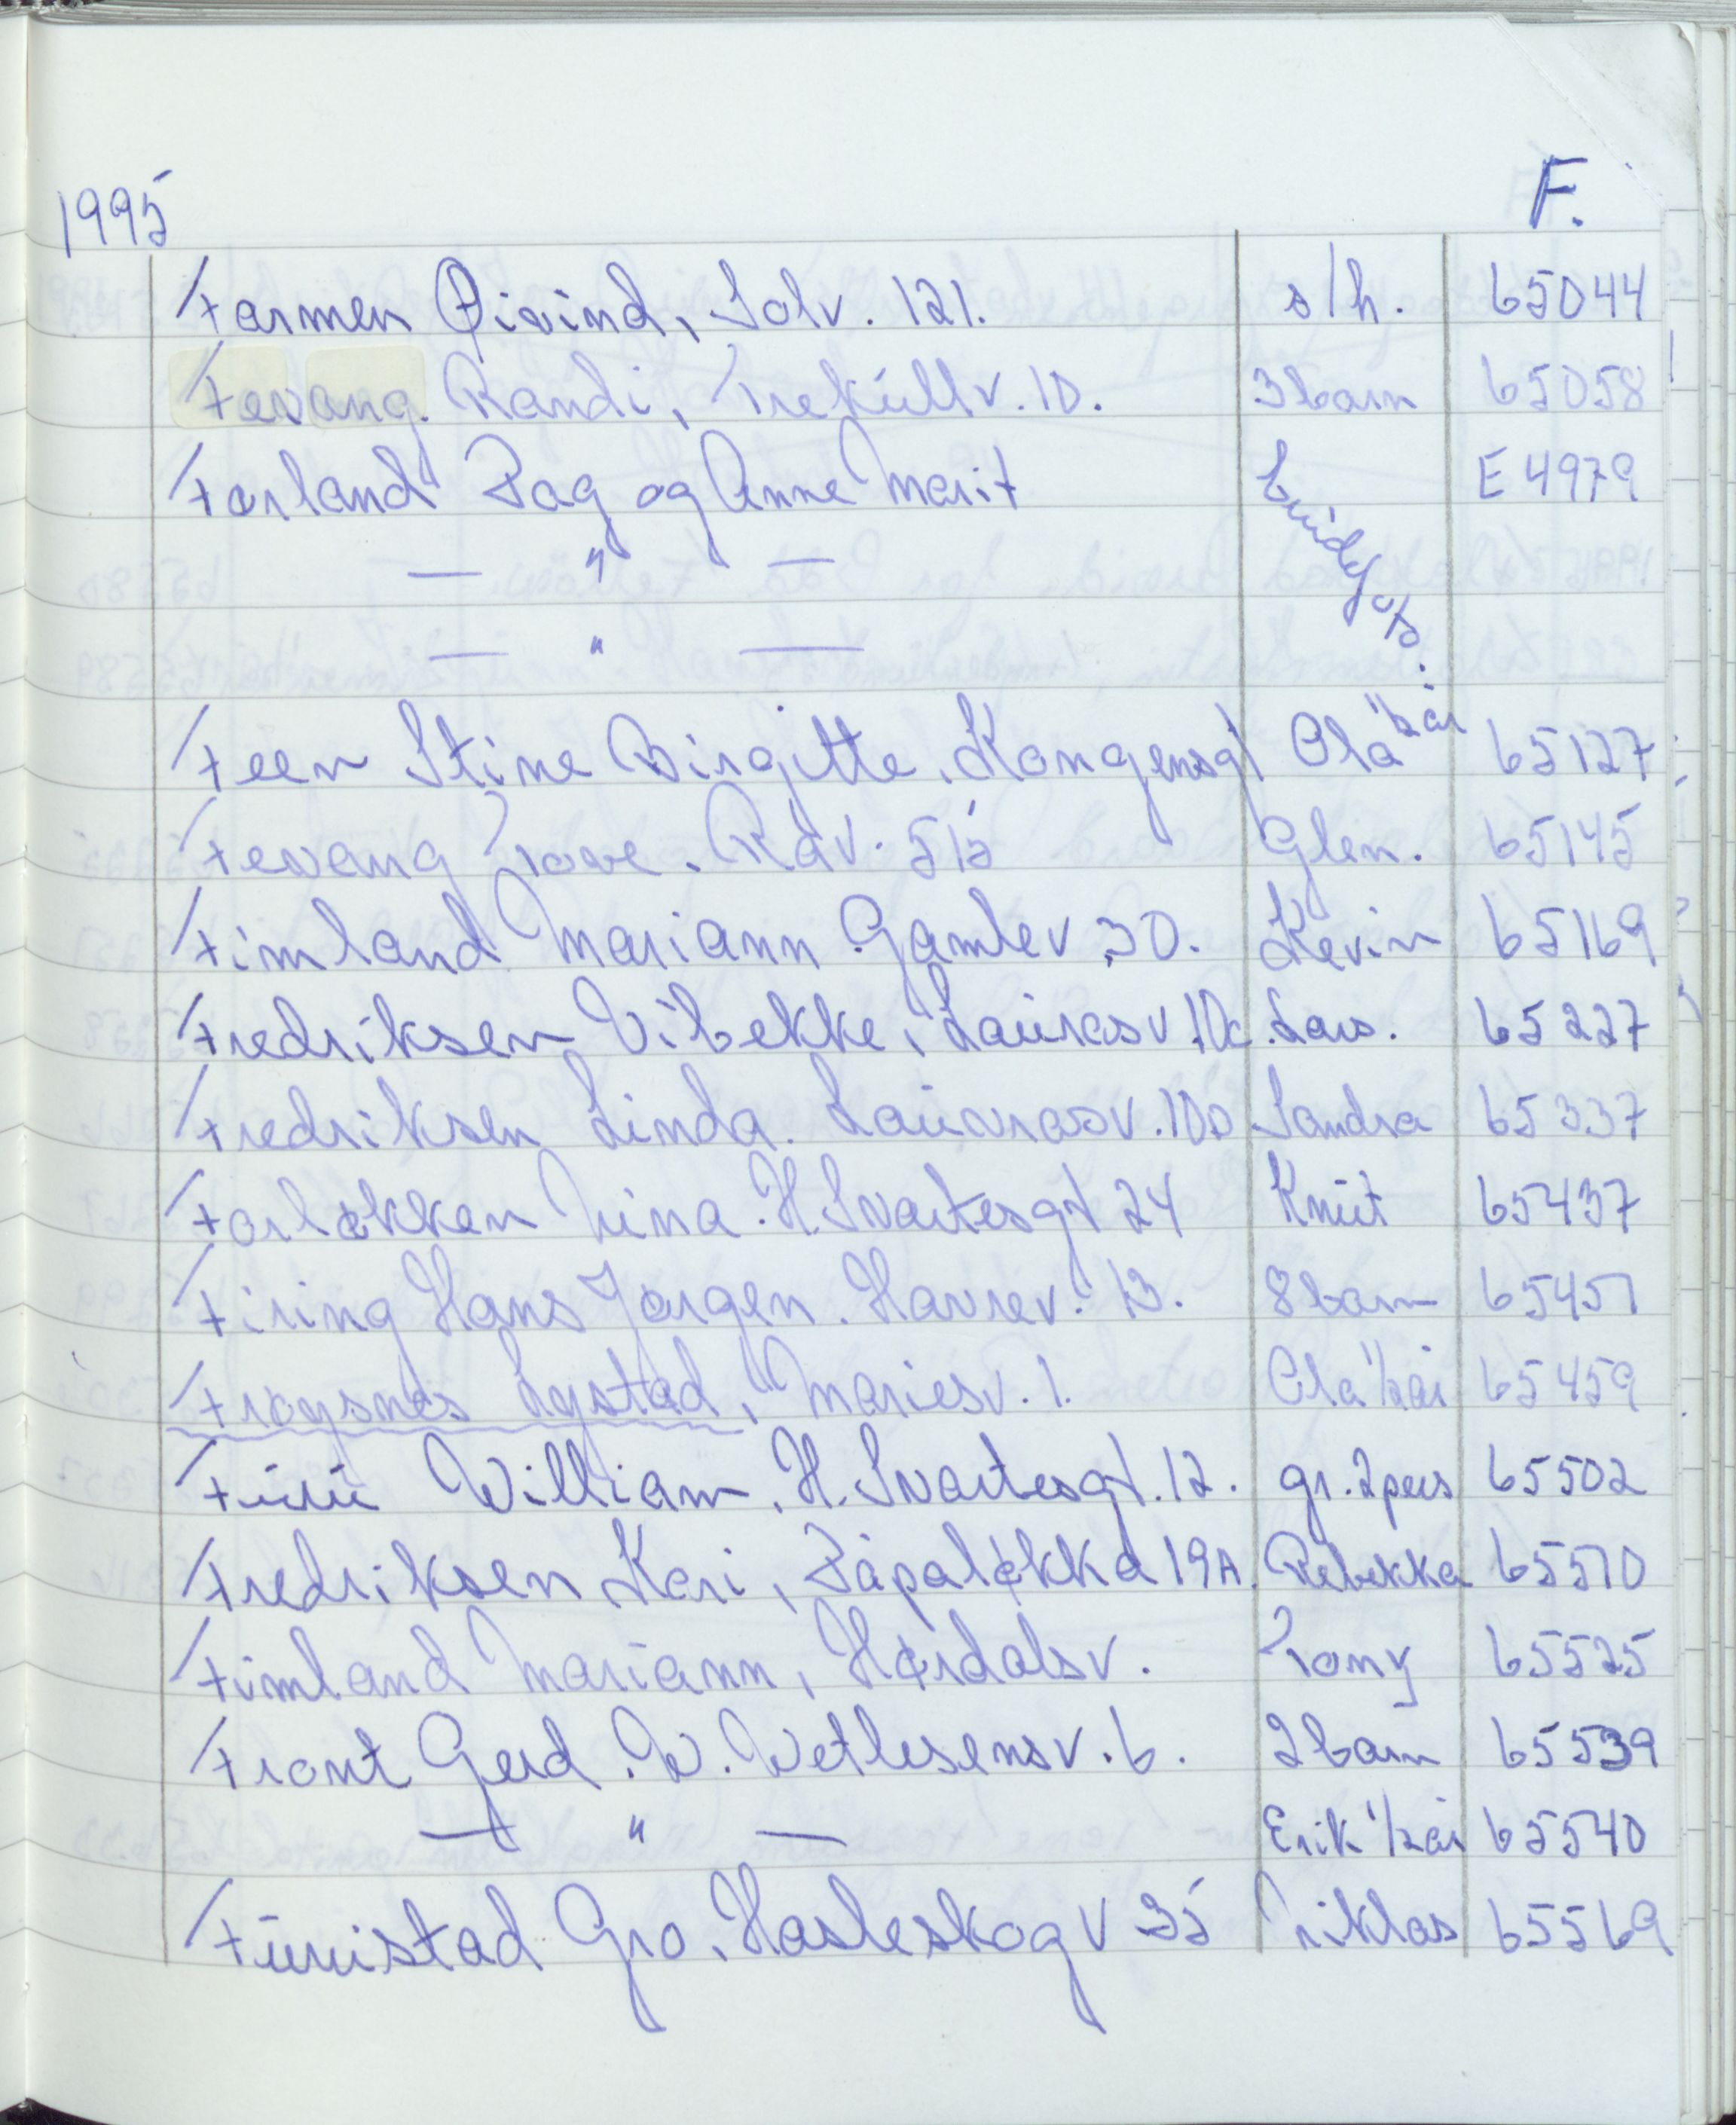 1995 F.
Farmen Øivind, Solv. 121. s/h. 65044
Fevang Randi, Trekúllv. 10. 3barn 65058
Førland Dag og Anne Marit E 4979
— " —
— " —
Feen Stine Birgitte. Kongensgt Ola 1/2 år 65127
Fevang Tove. Råv. 515 Glen. 65145
Fimland Mariann Gamlev 30. Kevin 65169
Fredriksen Vibekke, Laurasv. 10c. Lars. 65227
Fredriksen Linda. Laurasv. 10D Sandra 65337
Forløkken Nina. H. Svartesgt 24 Knut 65437
Firing Hans Jørgen. Havrev. 13. 8barn 65457
Frøysnes Lystad, Mariesv. 1. Ola 1/2 år 65459
Furu William. H. Svartesgt. 12. gr. 2pers 65502
Fredriksen Kari, Dåpaløkka 19A. Rebekka 65510
Fimland Mariann, Hørdalsv. Tony 65525
Front Gerd. W. Wetlesensv. 6. 2barn 65539
— " — Erik 1/2 år 65540
Furustad Gro. Hasleskogv 35 Niklas 65569